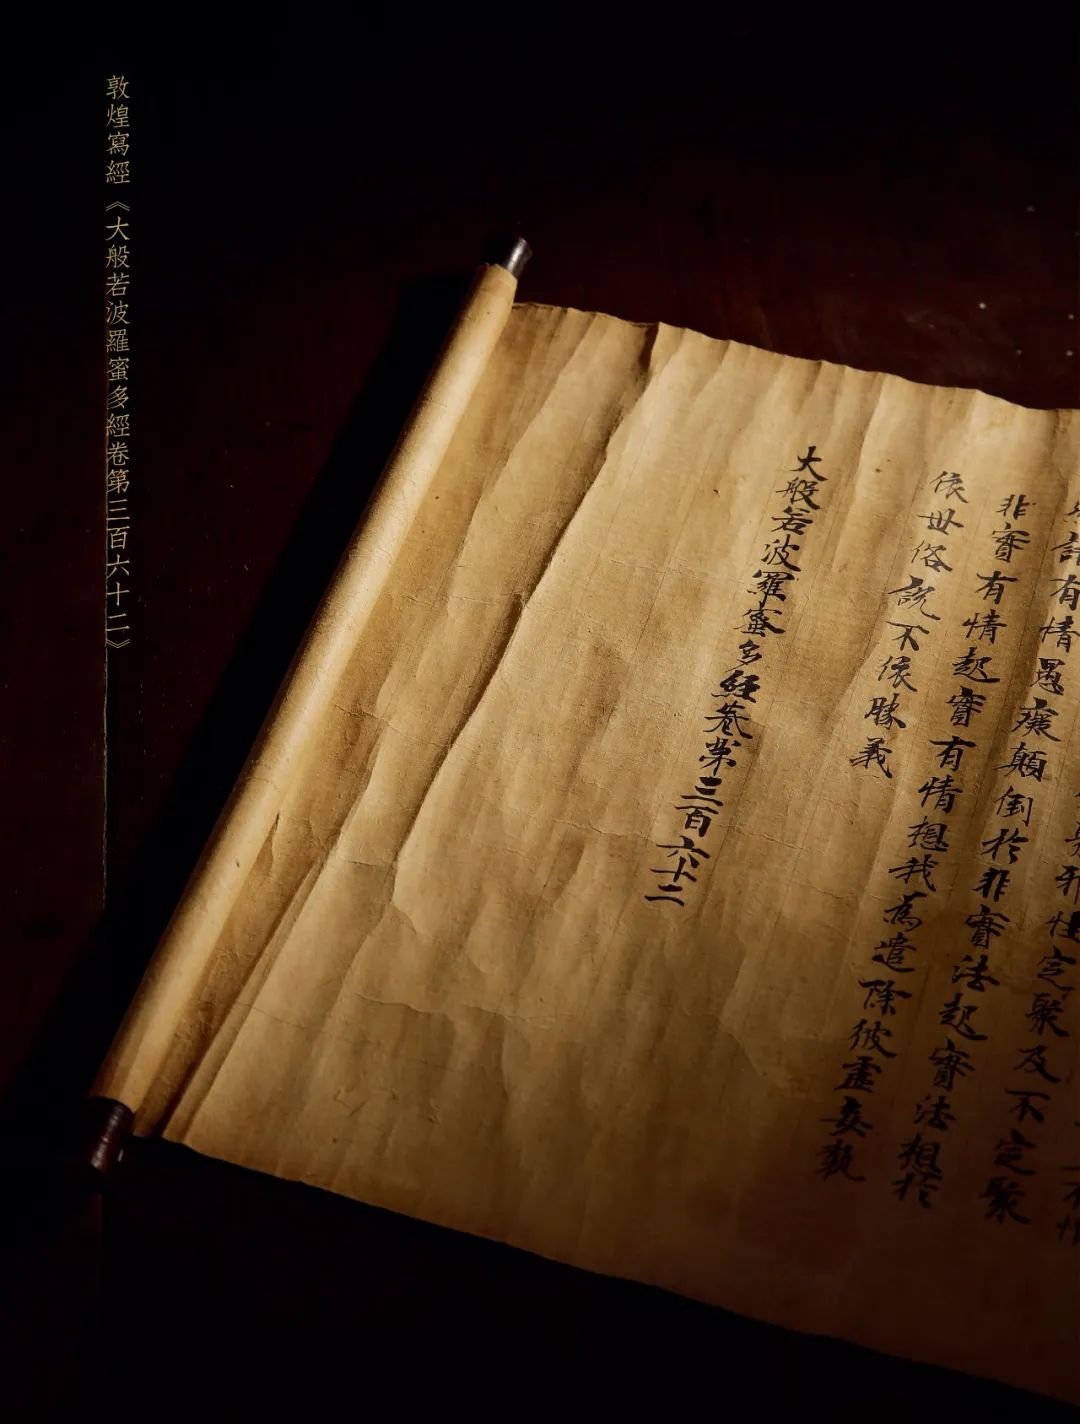 邪性定聚及不定聚
諸有情愚癡顛倒於非實法起實法想於
非實有情起實有情想我為遣除彼虛妄執
依世俗說不依勝義
大般若波羅蜜多經卷第三百六十二
敦煌寫經《大般若波羅蜜多經卷第三百六十二》